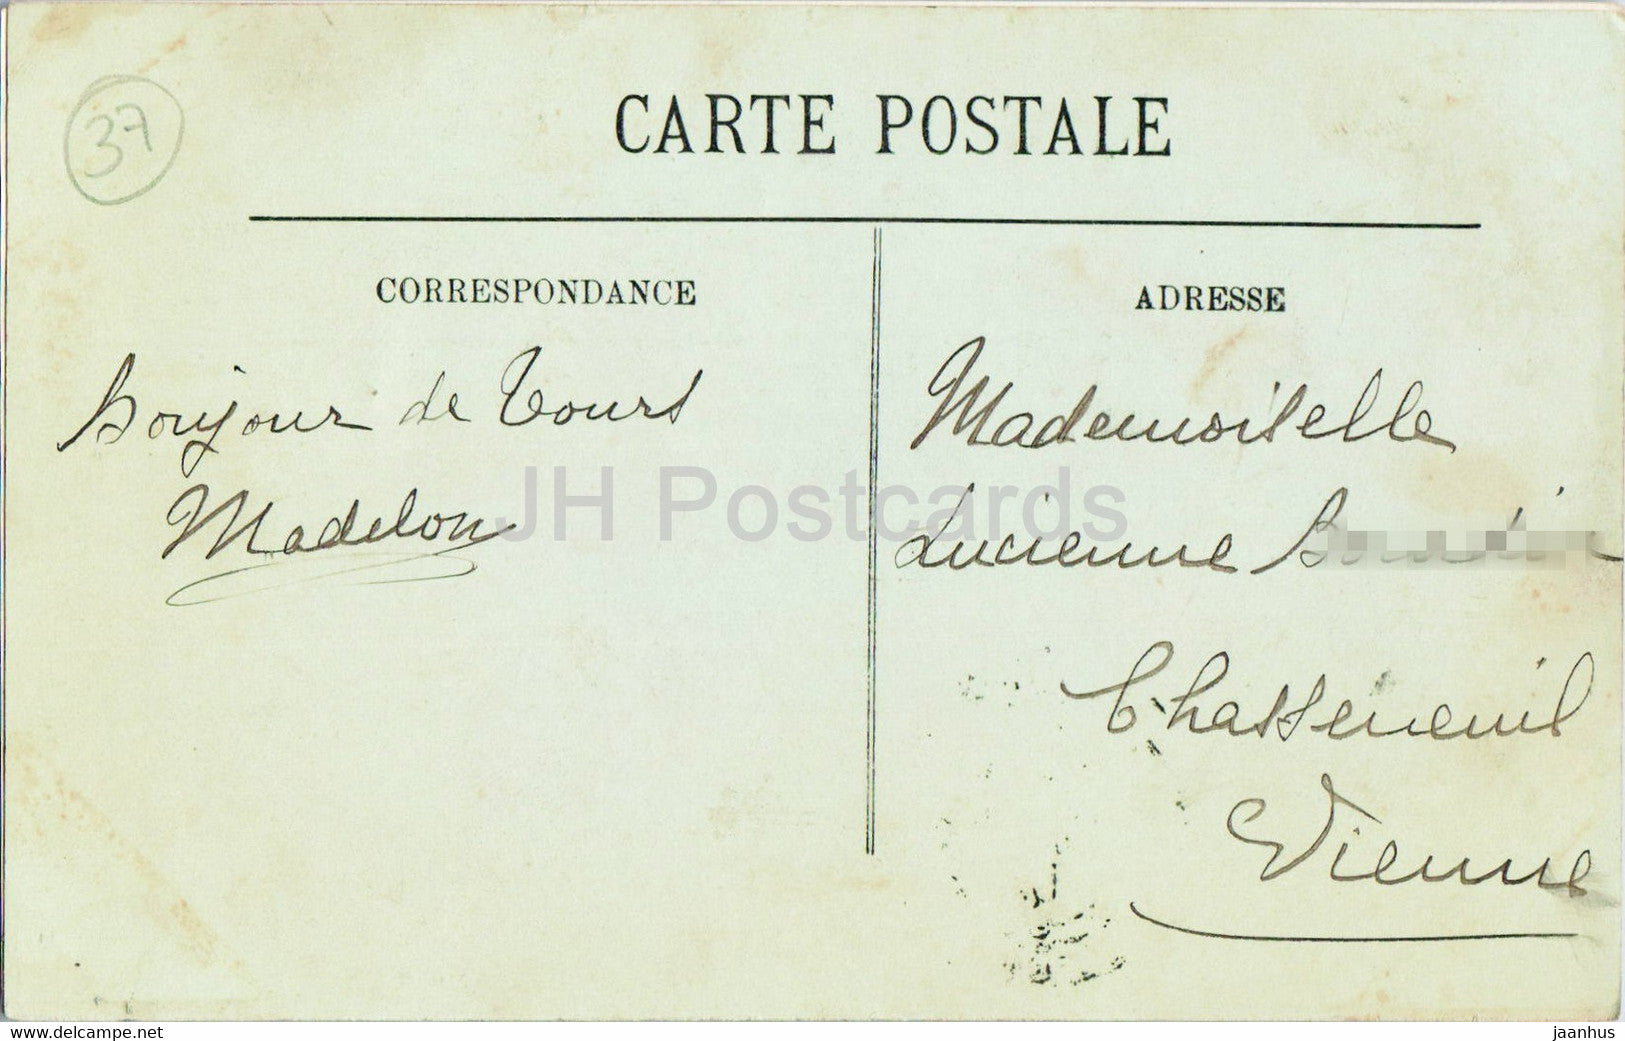 37
CARTE POSTALE
CORRESPONDANCE
Bonjour de Tours
Madelon
ADRESSE
Mademoiselle
Lucienne
Chasseneuil
Vienne
JH Postcards
www.delcampe.net
jaanhus